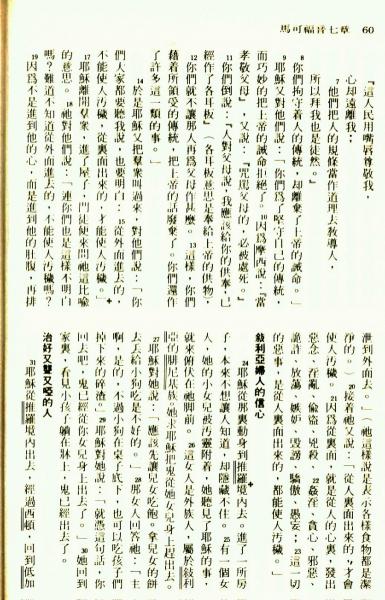 馬可福音七章 60
『這人民用嘴唇尊敬我,
心却遠離我;
7 他們把人的規條當作道理去教導人,
所以拜我也是徒然。』
8 你們拘守着人的傳統,却離棄了上帝的誡命。」
9 耶穌又對他們說:「你們爲了堅守自己的傳統,
而巧妙的把上帝的誡命拒絕了。10 因爲摩西說:『當
孝敬父母』,又說:『咒罵父母的,必被處死。』
11 你們倒說:『人對父母說:我應該給你的供奉,已
經作了各耳板』(各耳板意思是奉給上帝的供物),
12 你們就不讓那人再爲父母作甚麼。13 這樣,你們
藉着所領受的傳統,把上帝的話廢棄了。你們還作
了許多這一類的事。」
14 於是耶穌又把羣衆叫過來,對他們說:「你
們人家都要聽我說,也要明白:15 從外面進去的,
不能使人汚穢,從裏面出來的,才能使人汚穢。」
17 耶穌離開羣衆,進了屋子,門徒便來問祂這比喻
的意思。18 祂對他們說:「連你們也是這樣不明白
嗎?難道不知道從外面進去的,不能使人汚穢嗎?
19 因爲不是進到他的心,而是進到他的肚腹,再排
泄到外面去。」(祂這樣說是表示各樣食物都是潔
淨的。)20 接着祂又說:「從人裏面出來的,才會
使人汚穢。21 因爲從裏面,就是從人的心裏,發出
惡念、苟亂、偷盜、兇殺、22 姦淫、貪心、邪惡、
詭詐、放蕩、嫉妒、毀謗、驕傲、愚妄;23 這一切
的惡事,是從人裏面出來的,都能使人汚穢。」
敍利亞婦人的信心
24 耶穌從那裏動身到推羅境內去。進了一所房
子,本來不想讓人知道,却隱藏不住。25 有一個女
人,她的小女兒被汚靈附着,她聽見了耶穌的事,
就來俯伏在祂脚前。26 這女人是外族人,屬於敍利
亞的腓尼基族。她求耶穌把鬼從她女兒身上趕出去。
27 耶穌對她說:「應該先讓兒女吃飽。拿兒女的餅
去丟給小狗吃是不好的。」28 那女人回答祂:「主
啊,是的,不過小狗在桌子底下,也可以吃孩子們
掉下來的碎渣。」29 耶穌對她說:「就憑這句話,你
回去吧,鬼已經從你女兒身上出去了。」30 她回到
家裏,看見小孩子躺在牀上,鬼已經出去了。
治好又聾又啞的人
31 耶穌從推羅境內出去,經過西頓,回到低加